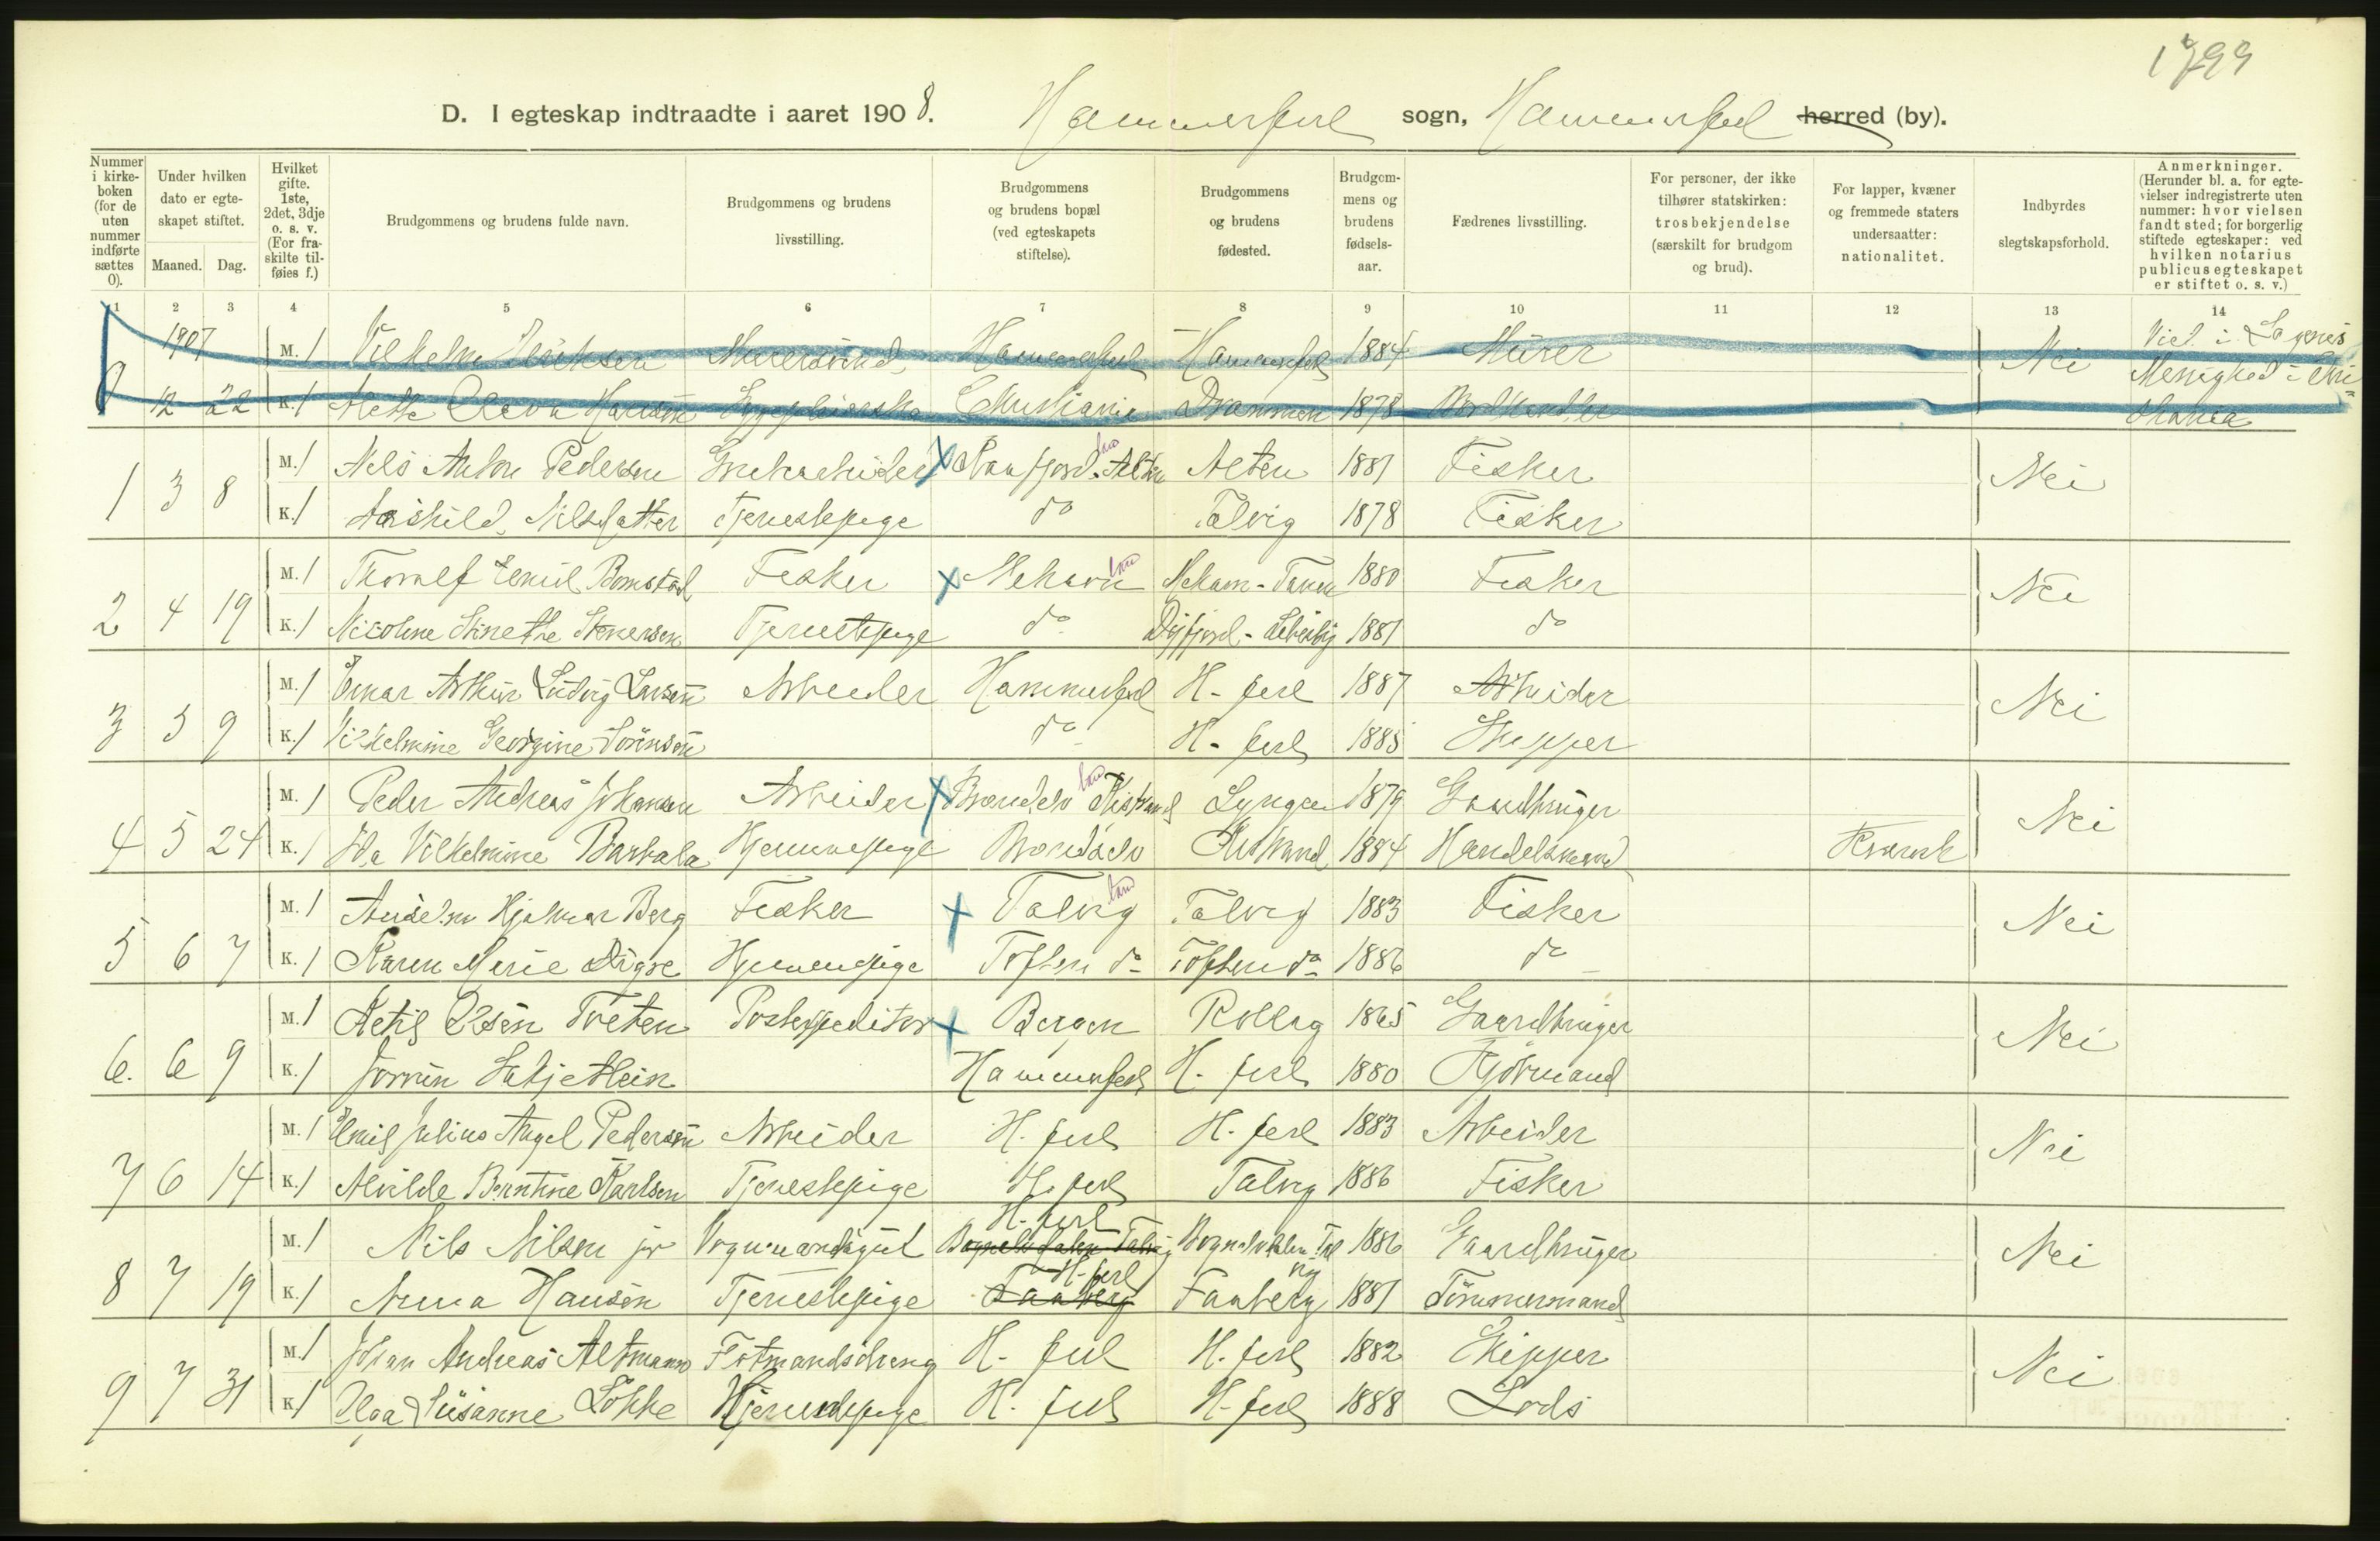 1799
D. I egteskap indtraadte i aaret 1908. Hammerfest sogn, Hammerfest herred (by).
Nummer i kirke-boken (for de uten nummer indførte sættes 0).
Under hvilken dato er egte-skapet stiftet.
Maaned. Dag.
Hvilket gifte. 1ste, 2det, 3dje o. s. v. (For fra-skilte til-føies f.)
Brudgommens og brudens fulde navn.
Brudgommens og brudens livsstilling.
Brudgommens og brudens bopæl (ved egteskapets stiftelse).
Brudgommens og brudens fødested.
Brudgom-mens og brudens fødsels-aar.
Fædrenes livsstilling.
For personer, der ikke tilhører statskirken: trosbekjendelse (særskilt for brudgom og brud).
For lapper, kvæner og fremmede staters undersaatter: nationalitet.
Indbyrdes slegtskapsforhold.
Anmerkninger. (Herunder bl. a. for egte-vielser indregistrerte uten nummer: hvor vielsen fandt sted; for borgerlig stiftede egteskaper: ved hvilken notarius publicus egteskapet er stiftet o. s. v.)
1 2 3 4 5 6 7 8 9 10 11 12 13 14
1907 M. 1 Vilhelm Hammerfest Hammerfest 1884 Murer Nei Viet i
0 12 22 K. 1 Mette Hansen Christiania Drammen 1878 Menighed i Chri-stiania
M. 1 Nils Anton Pedersen Grubearbeider X Rafsfjord. Alten land Alten 1881 Fisker Nei
1 3 8 K. 1 Aashild Nilsdatter Tjenestepige do Talvig 1878 Fisker
M. 1 Thoralf Emil Bomstad Fisker X Mehavn land Mehavn - Tanen 1880 Fisker Nei
2 4 19 K. 1 Nicoline Stenersen Tjenestepige do Dyfjord - Lebesby 1881 do
M. 1 Einar Arthur Ludvig Larsen Arbeider Hammerfest H-fest 1887 Arbeider Nei
3 5 9 K. 1 Vilhelmine Georgine Sörensen do H-fest 1885 Skipper
M. 1 Peder Andreas Johansen Arbeider X Brændelv Kistrand land Lyngen 1879 Gaardbruger Nei
4 5 24 K. 1 Ida Vilhelmine Barbala Hjemmepige Brændelv Kistrand 1884 Handelsmand Kvænsk
M. 1 Anselm Hjalmar Berg Fisker X Talvig land Talvig 1883 Fisker Nei
5 6 7 K. 1 Karen Marie Digre Hjemmepige Toften do Toften do 1886 do
M. 1 Ketil Olsen Tveten Postexpeditør X Bergen Rollag 1865 Gaardbruger Nei
6. 6 9 K. 1 Jorunn Hammerfest H-fest 1880 Kjøbmand
M. 1 Emil Julius Angel Pedersen Arbeider H.fest H.fest 1883 Arbeider Nei
7 6 14 K. 1 Alvilde Berntine Karlsen Tjenestepige H.fest Talvig 1886 Fisker
M. 1 Nils Nilsen jr Vognmandsgut H.fest Bognelvdalen Talvig Bognelvdalen Tal vig 1886 Gaardbruger Nei
8 7 19 K. 1 Anna Hansen Tjenestepige H-fest Faaberg Faaberg 1881 Tömmermand
M. 1 Johan Andreas Altmann Fotmandsdreng H-fest H.fest 1882 Skipper Nei
9 7 31 K. 1 Olga Susanne Løkke Hjemmepige H.fest H-fest 1888 Lods